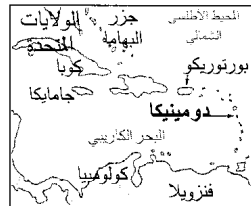 المحيط الأطلسي
الشمالي
الولايات
المتحدة
جزر
البهاما
كوبا
بورتوريكو
جامايكا
دومينيكا
البحر الكاريبي
كولومبيا
فنزويلا